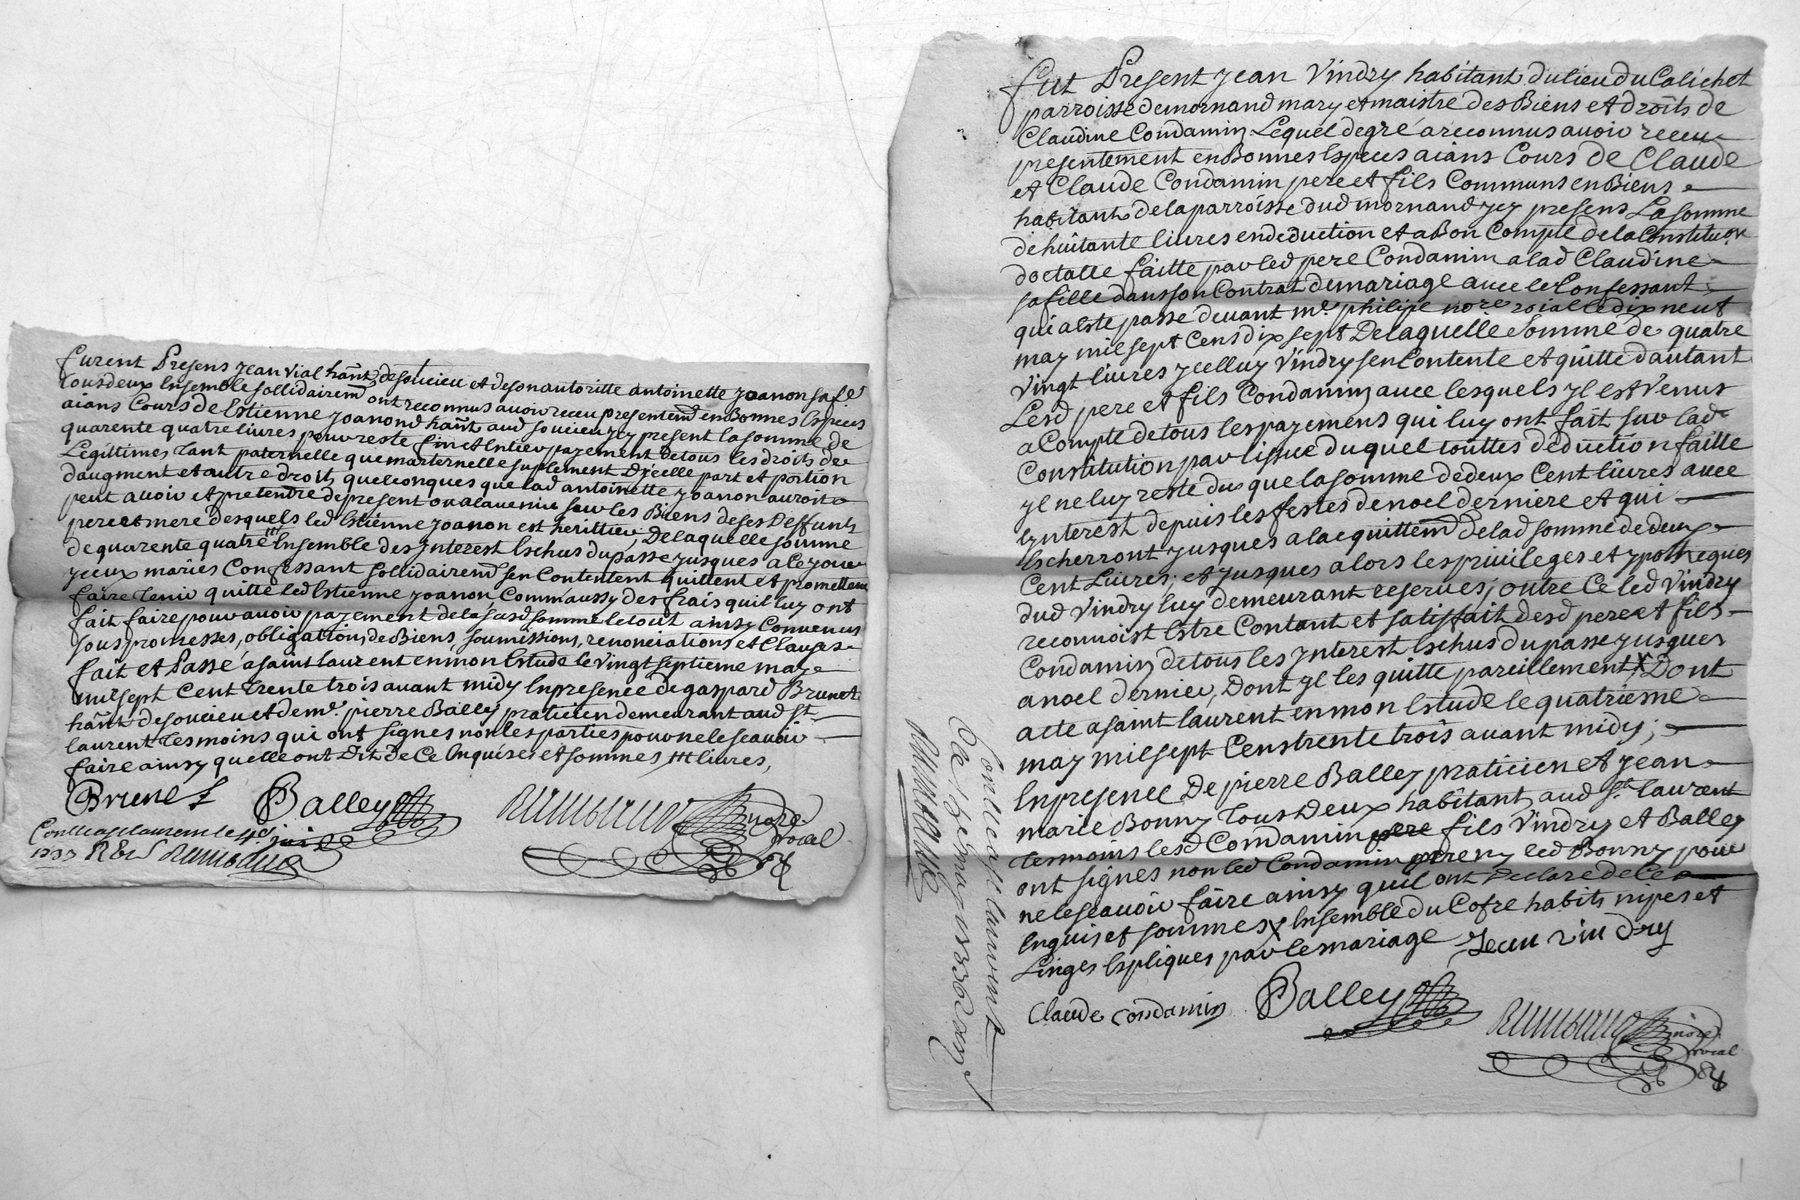 furent Presens Jean Vial hãnt de soucieu et de son autoritté antoinette joanon sa fe
tous deux Ensemble sollidairemt ont reconnus avoir receu presentemt en Bonnes Especes
aians Cours de Estienne joanon hãnt aud soucieu yey present la somme de
quarente quatre livres pour reste fin et Entier payement de tous les droits de
Legittimes tant paternelle que maternelle suplement D'ycelle part et portion
daugment et autre droits quelconques que lad antoinette joanon auroit
peut avoir et pretendre de present ou a lavenir sur les Biens de ses Deffunts
pere et mere desquels led Estienne joanon est herittier, De laquelle somme
de quarente quatre tt Ensemble des ynterest Eschus du passe jusques a ce jour
yceux mariés Confessant sollidairemt sen Contentent quittent et promettent
faire tenir quitte led Estienne joanon Comm aussy des frais quil luy ont
fait faire pour avoir payement de la susd somme le tout ainsy Convenus
sous promesses, obligation, de Biens, soumissions, renonciations et Clauses
fait et Passé a saint laurent en mon Estude le vingt septieme may
mil sept Cent trente trois avant midy En presence de gaspard Brunet
hãnt de soucieu et de me. pierre Balley praticien demeurant aud st
laurent tesmoins qui ont signes non les parties pour ne le scavoir
faire ainsy quelle ont Dit De Ce Enquises et sommes livres,
Brunet Balley nore
roial
1733
fut Present Jean Vindry habitant du lieu du Calichet
parroisse de mornand mary et maistre des Biens et droits de
Claudine Condamin Lequel de gré a reconnus avoir receu
presentement en Bonnes Especes aians Cours de Claude
et Claude Condamin pere et fils Communs en Biens
habitants de la parroisse dud mornand yey presens La somme
de huitante livres en deduction et a Bon Compte de la Constituon
doctalle faitte par led pere Condamin a lad Claudine
sa fille dans son Contrat de mariage avec le Confessant
qui a Esté passé devant me. philipe nore roial le dix neuf
may mil sept Cens dix sept De laquelle somme de quatre
vingt livres ycelluy Vindry sen Contente et quitte dautant
Lesd pere et fils Condamin avec lesquels yl est Venus
a Compte de tous les payemens qui luy ont fait sur lad
Constitution par lissue duquel touttes deduction faitte
yl ne luy reste dus que la somme de deux Cent livres avec
ynterest depuis les festes de noel derniere et qui
Escherront jusques a lacquittemt de lad somme de deux
Cent Livres; et jusques alors les privileges et ypotheques
dud Vindry luy demeurant reserves; outre Ce led Vindry
reconnoist Estre Contant et satisfait desd pere et fils
Condamin de tous les ynterest Eschus du passe jusques
a noel dernier, Dont yl les quitte pareillement X Dont
acte a saint laurent en mon Estude le quatrieme
may mil sept Cens trente trois avant midy;
En presence De pierre Balley praticien et Jean
marie Bonny tous Deux habitant aud st laurent
tesmoins lesd Condamin pere fils Vindry et Balley
ont signes non led Condamin pere ny led Bonny pour
ne le scavoir faire ainsy quil ont Declare de Ce
Enquis et sommes X Ensemble du Cofre habits nipes et
Linges Expliques par le mariage Jean vindry
Claude Condamin Balley nore
roial